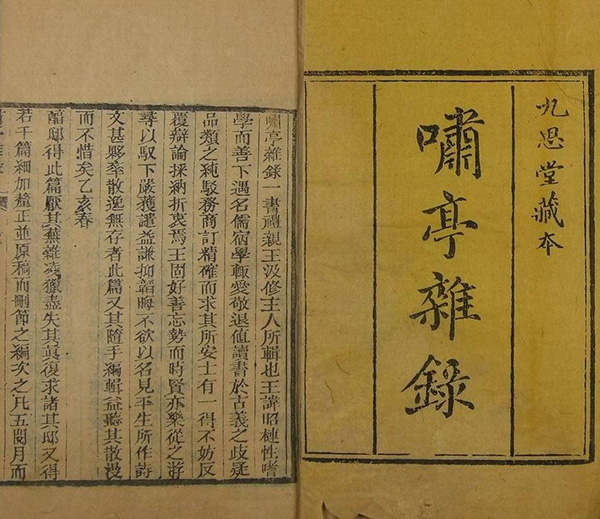 九思堂藏本
嘯亭雜錄
嘯亭雜錄一書禮親王汲修主人所輯也王諱昭槤性嗜
學而善下遇名儒宿學輒愛敬退值讀書於古義之歧疑
品類之純駁務商訂精確而求其所安士有一得不妨反
覆辯論採納折衷焉王固好善忘勢而時賢亦樂從之游
尋以馭下嚴獲譴益謙抑韜晦不欲以名見平生所作詩
文甚夥率散逸無存者此篇又其隨手編輯益聽其散漫
而不惜矣乙亥春
邸得此篇厭其蕪雜淩獵盡失其眞復求諸其邸又得
若干篇細加釐正並原稿而刪節之編次之凡五閱月而